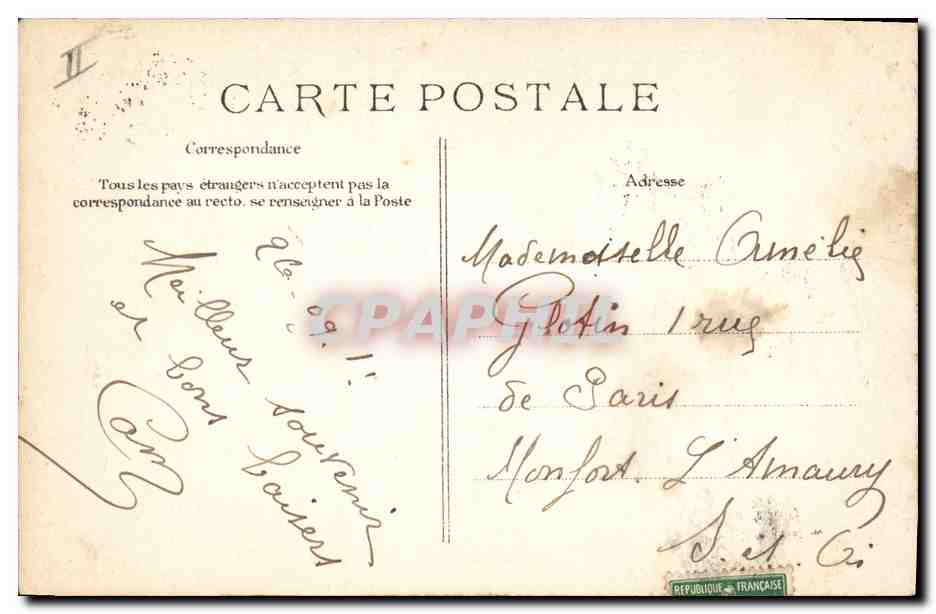 II
CARTE POSTALE
Correspondance
Tous les pays étrangers n'acceptent pas la
correspondance au recto, se renseigner à la Poste
Adresse
Meilleur souvenir
et bons baisers
Mademoiselle Amélie
Glotin 1 rue
de Paris
Monfort. L'Amaury
S. et. O
CPAPHIL
REPUBLIQUE FRANÇAISE